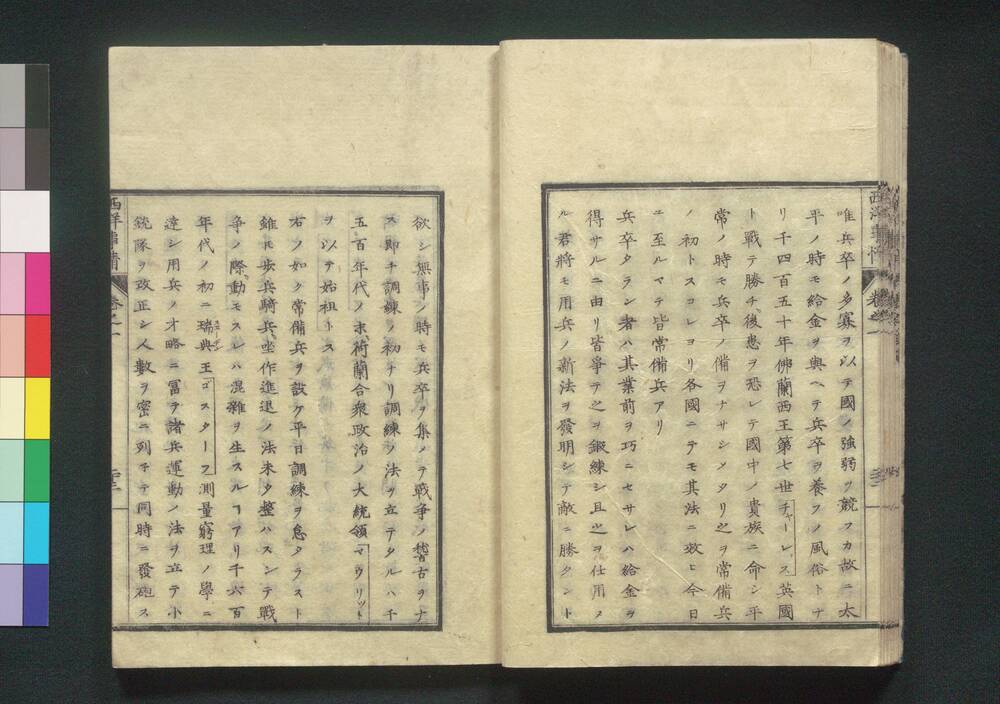 唯兵卒ノ多寡ヲ以テ國ノ強弱ヲ競フカ故ニ太
平ノ時モ給金ヲ與ヘテ兵卒ヲ養フノ風俗トナ
リ千四百五十年佛蘭西王第七世チャーレス英國
ト戰テ勝チ後患ヲ恐レテ國中ノ貴族ニ命シ平
常ノ時モ兵卒ノ備ヲナサシメタリ之ヲ常備兵
ノ初トスコレヨリ各國ニテモ其法ニ效ヒ今日
ニ至ルマテ皆常備兵アリ
兵卒タラン者ハ其業前ヲ巧ニセサレハ給金ヲ
得サルニ由リ皆爭テ之ヲ鍛練シ且之ヲ仕用ヌ
ル君將モ用兵ノ新法ヲ發明シテ敵ニ勝タント
西洋事情
卷之一
欲シ無事ノ時モ兵卒ヲ集メテ戰爭ノ稽古ヲナ
ス即チ調練ノ初ナリ調練ノ法ヲ立テタルハ千
五百年代ノ末荷蘭合衆政治ノ大統領マウリット
ヲ以テ始祖トス
右ノ如ク常備兵ヲ設ケ平日調練ヲ怠タラスト
雖𪜈歩兵騎兵坐作進退ノ法未タ整ハスシテ戰
爭ノ際動モスレハ混雜ヲ生スルヿアリ千六百
年代ノ初ニ瑞典王ゴスターフ測量窮理ノ學ニ
達シ用兵ノ才略ニ冨テ諸兵運動ノ法ヲ立テ小
銃隊ヲ改正シ人數ヲ密ニ列子テ同時ニ發砲ス
西洋事情
卷之一